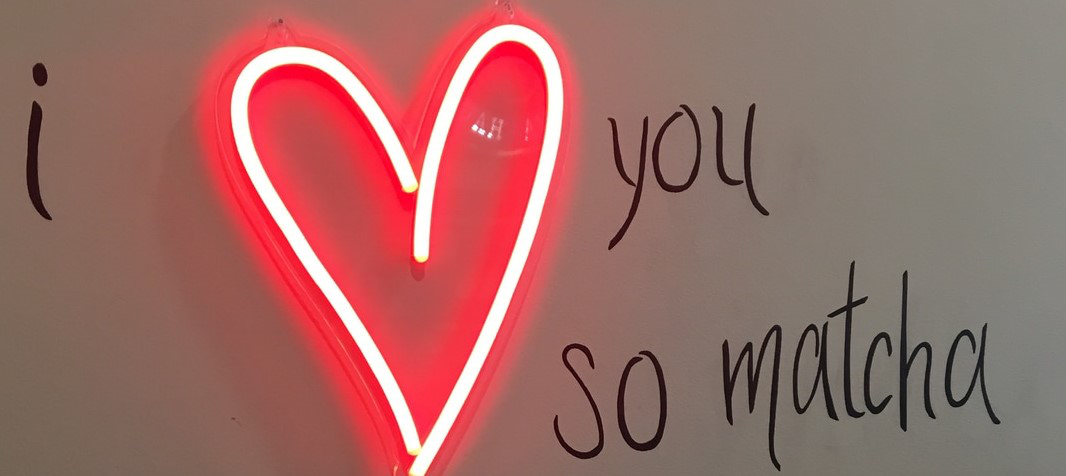 i you
so matcha